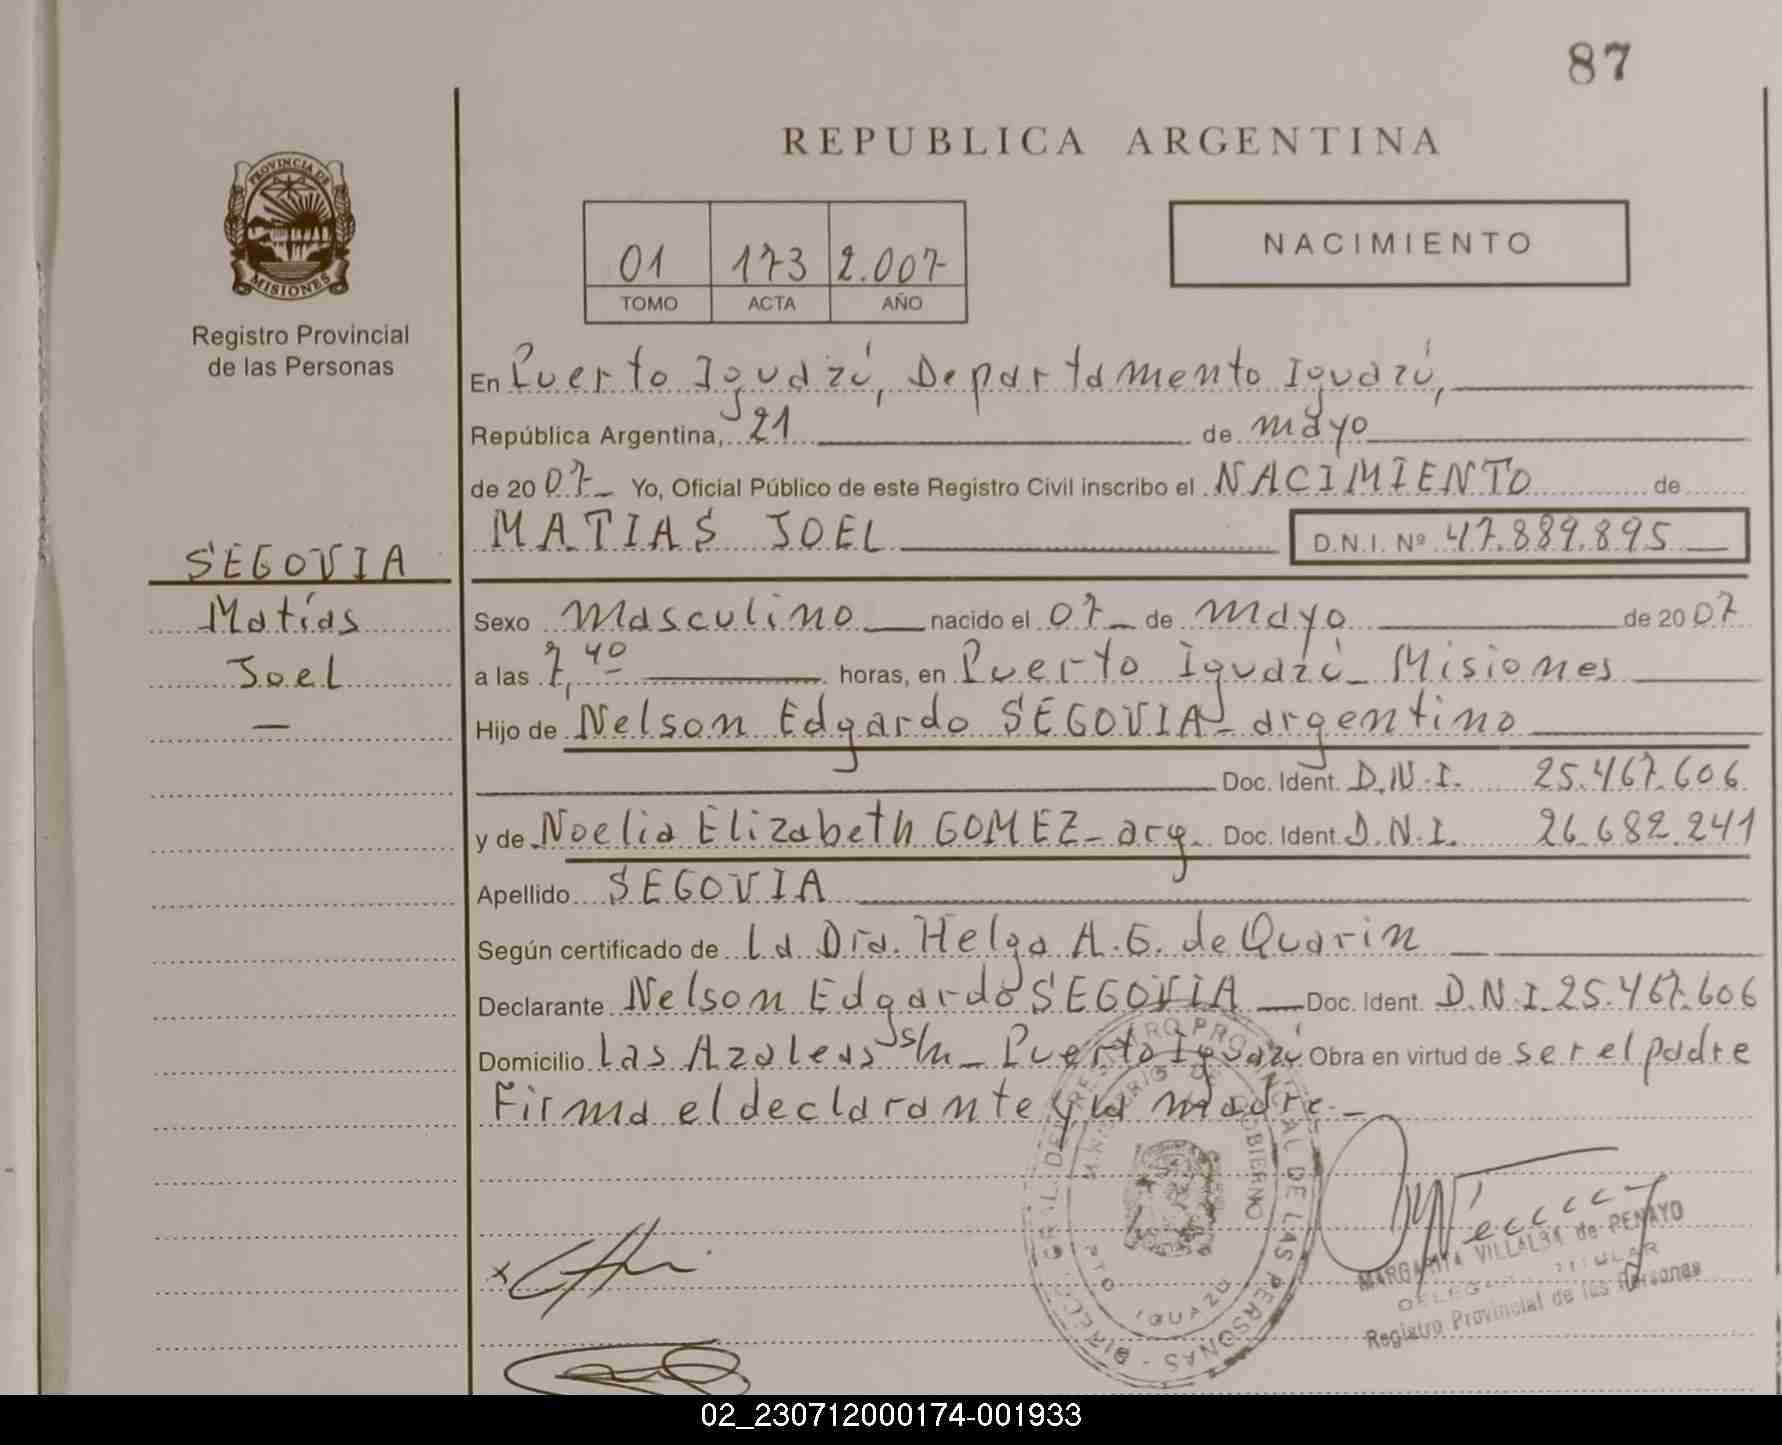 87
REPUBLICA ARGENTINA
PROVINCIA DE
MISIONES
Registro Provincial
de las Personas
01 173 2.007
TOMO ACTA AÑO
NACIMIENTO
En Puerto Iguazú, Departamento Iguazú,
República Argentina, 21 de mayo
de 2007 Yo, Oficial Público de este Registro Civil inscribo el NACIMIENTO de
MATIAS JOEL D.N.I. Nº 47.889.895
SEGOVIA
Matías
Joel
Sexo masculino nacido el 07 de mayo de 2007
a las 7,40 horas, en Puerto Iguazú - Misiones
Hijo de Nelson Edgardo SEGOVIA - argentino
Doc. Ident. D.N.I. 25.467.606
y de Noelia Elizabeth GOMEZ - arg. Doc. Ident. D.N.I. 26.682.241
Apellido SEGOVIA
Según certificado de la Dra. Helga A.G. de Quarin
Declarante Nelson Edgardo SEGOVIA Doc. Ident. D.N.I. 25.467.606
Domicilio Las Azaleas s/n - Puerto Iguazú Obra en virtud de ser el padre
Firma el declarante y la madre. -
DIRECC. GRAL. DEL REGISTRO PROVINCIAL DE LAS PERSONAS -
MINISTERIO DE GOBIERNO
PTO IGUAZU
MARGARITA VILLALBA de PENAYO
DELEGADA TITULAR
Registro Provincial de las Personas
02_230712000174-001933